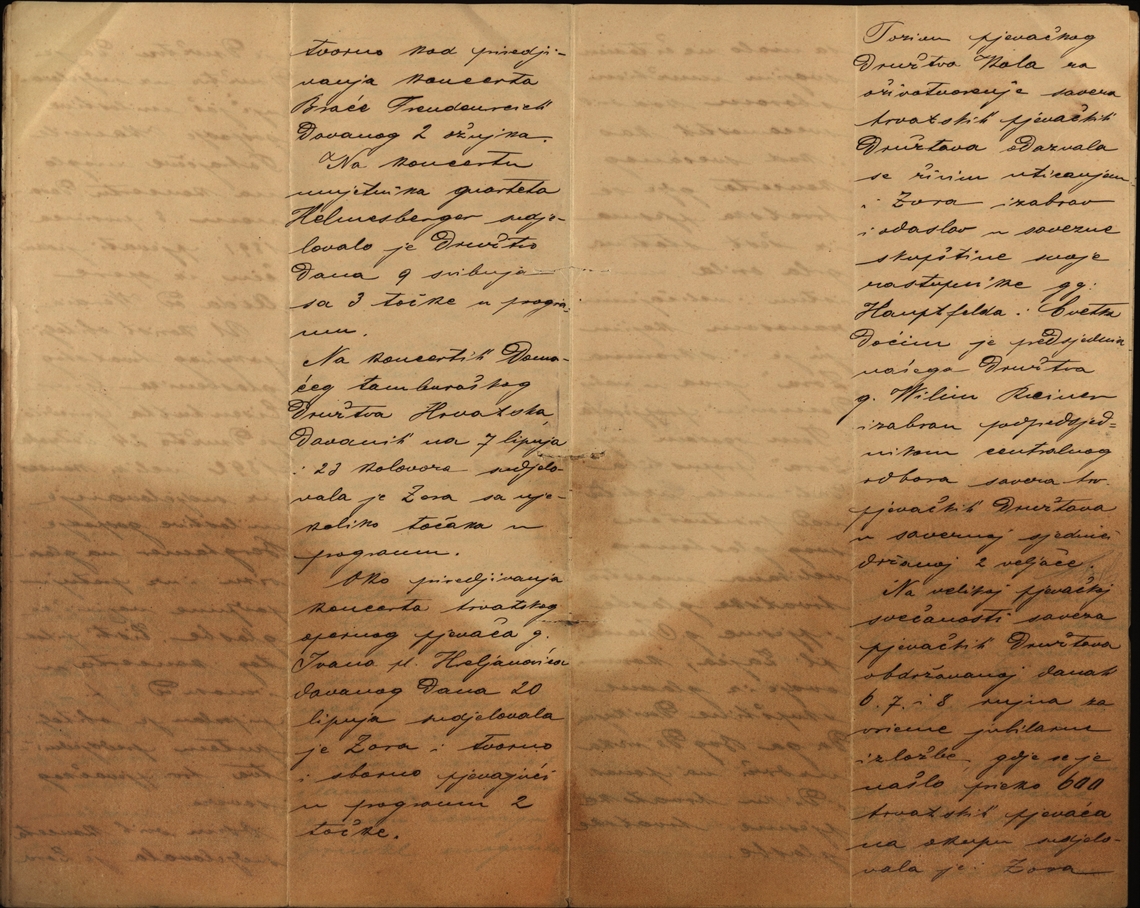 tvorno kod priredji-
vanja koncerta
Braće Freudenreich
Davanog 2 ožujka.
Na koncertu
umjetnika quarteta
Helmesberger sudje-
lovalo je Družtvo
Dana 9 svibnja
sa 3 točke u progra-
mu.
Na koncertih Doma-
ćeg tamburaškog
Družtva Hrvatska
Davanih na 7 lipnja
i 23 kolovoza sudjelo-
vala je Zora sa nje-
koliko točaka u
programu.
Oko priredjivanja
koncerta hrvatskog
opernog pjevača g.
Ivana pl. Hreljanovića
davanog Dana 20
lipnja sudjelovala
je Zora i tvorno
i sborno pjevajući
u programu 2
točke.
Pozivu pjevačkog
Družtva Kola za
oživotvorenje saveza
hrvatskih pjevačkih
Družtava odazvala
se živim uticanjem
i Zora izabrav
i odaslav u savezne
skupštine svoje
zastupnike gg.
Hauptfelda i Cvetka
Dočim je predsjednik
našega Družtva
g. Vilim Reiner
izabran podpredsjed=
nikom centralnog
odbora saveza hrv.
pjevačkih Družtava
u saveznoj sjednici
držanoj 2 veljače.
Na velikoj pjevačkoj
svečanosti saveza
pjevačkih Družtava
obdržavanoj danah
6. 7. i 8 rujna za
vrieme jubilarne
izložbe, gdje se je
našlo preko 600
hrvatskih pjevača
na okupu sudjelo-
vala je i Zora